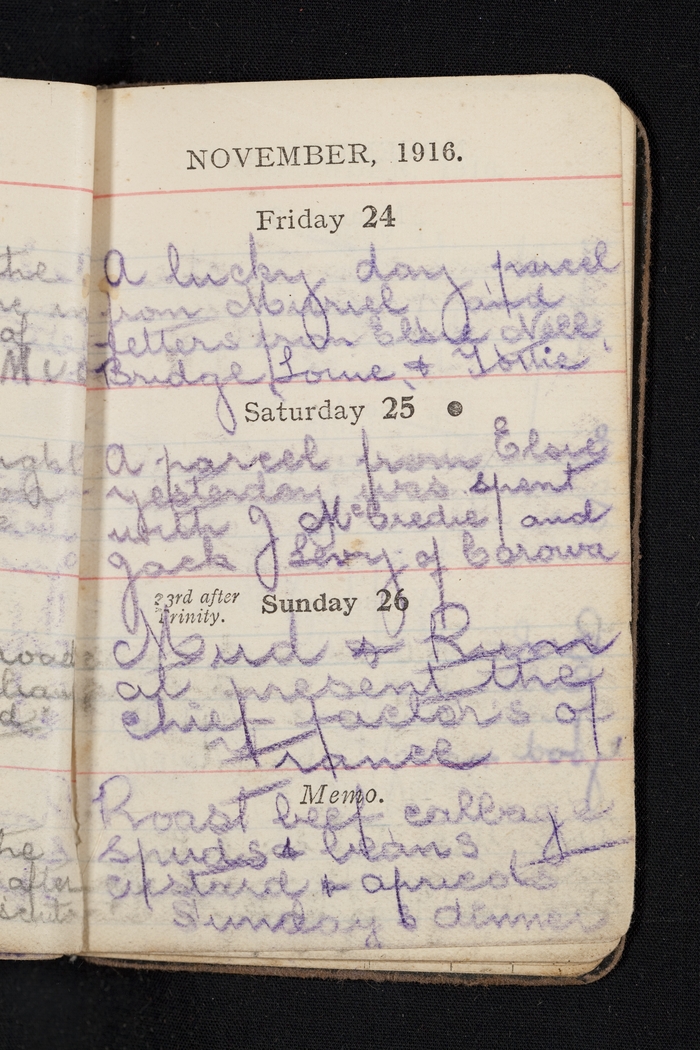 NOVEMBER, 1916.
Friday 24
A lucky day parcel
from Muriel and
letters from Elsie Nell
Bridge, Lorne, & Tottie
Saturday 25
A parcel from Elsie
yesterday was spent
with J McCredie and
Jack Levy of Corowa
23rd after
Trinity.
Sunday 26
Mud & Rum
at present the
chief factors of
France
Memo.
Roast beef cabbage
spuds & beans
custard & apricots
Sunday's dinner
the
of
road
the
after